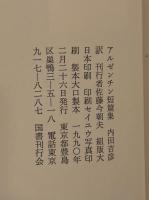 アルゼンチン短篇集　内田吉彦
訳　刊行者佐藤今朝夫　組版大
日本印刷　印刷セイユウ写真印
刷　製本大口製本　一九九〇年
二月二十六日発行　東京都豊島
区巣鴨三―五―一八　電話東京
九一七―八二八七　国書刊行会